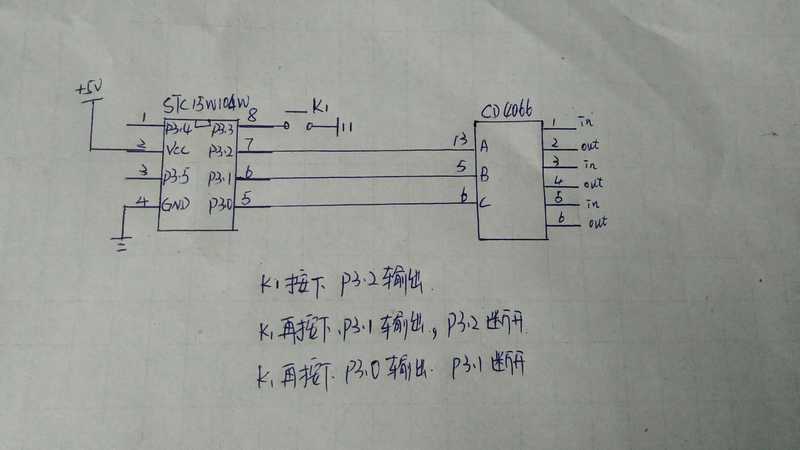 +5V
STC15W104W
K1
CD4066
1 P3.4 P3.3 8
2 VCC P3.2 7
3 P3.5 P3.1 6
4 GND P3.0 5
13 A 1 in
2 out
5 B 3 in
4 out
6 C 5 in
6 out
K1按下 P3.2输出
K1再按下.P3.1输出,P3.2断开
K1再按下.P3.0输出. P3.1断开